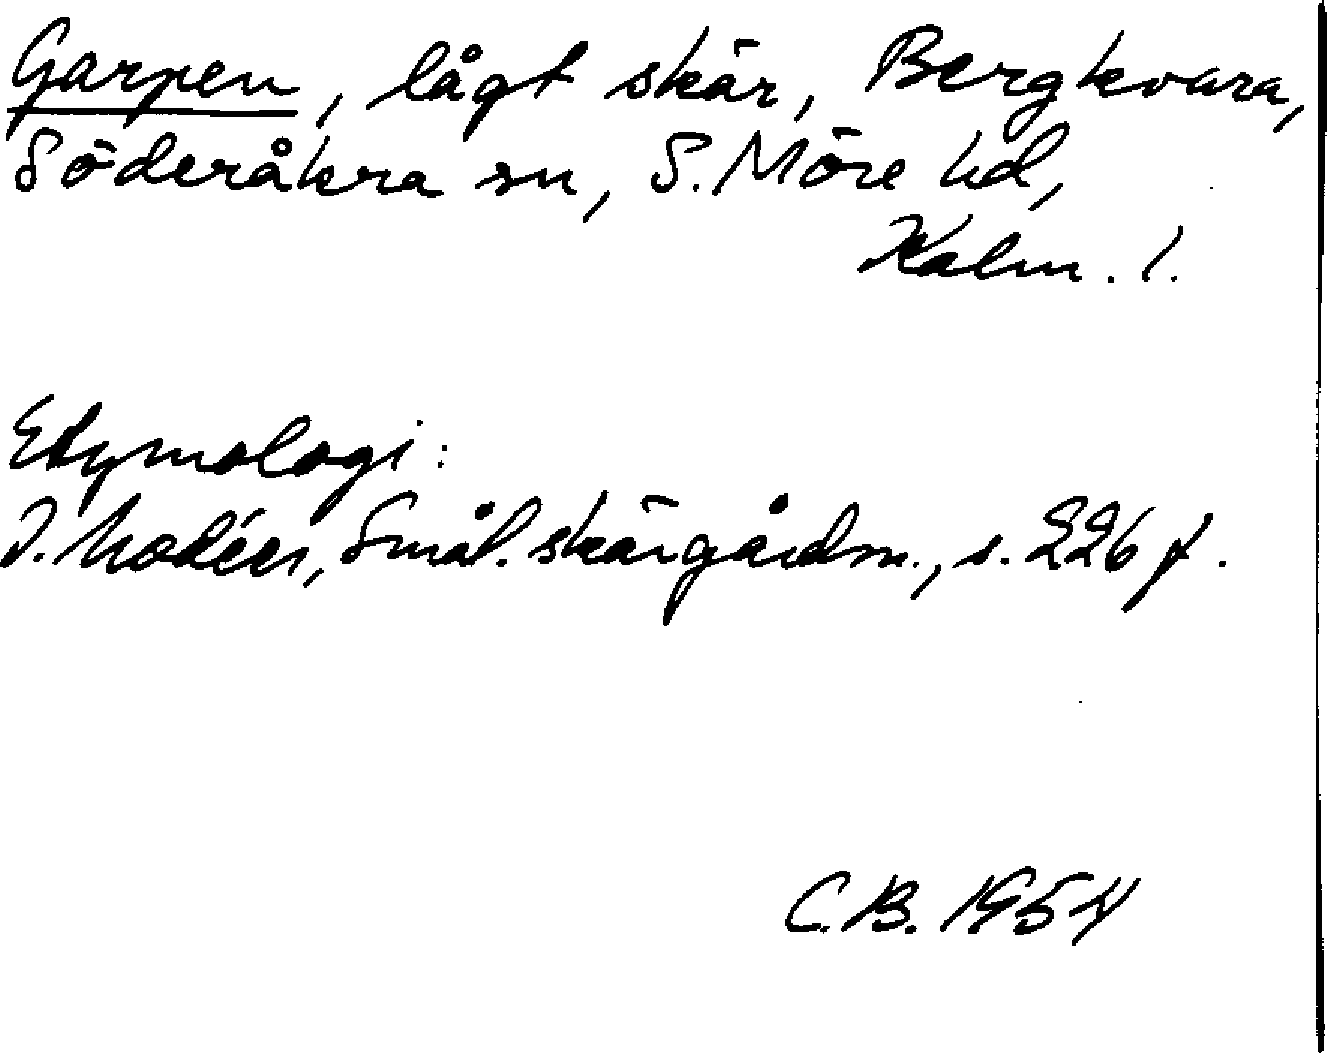 Garpen, lågt skär, Bergkvara,
Söderåkra sn, S. Möre hd,
Kalm. l.
Etymologi:
I. Modéer, Smål. skärgårdsn., s. 226 f.
C.B. 1954